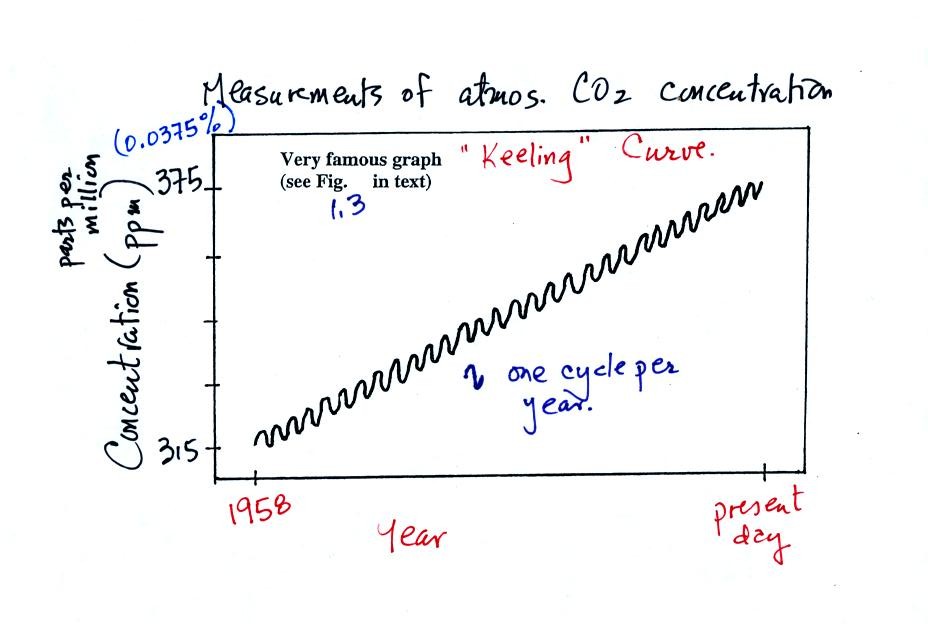 Measurements of atmos. CO2 concentration
(0.0375%)
Very famous graph
(see Fig. in text)
1.3
"Keeling" Curve.
parts per
million
Concentration (ppm)
375
315
one cycle per
year.
1958
Year
present
day